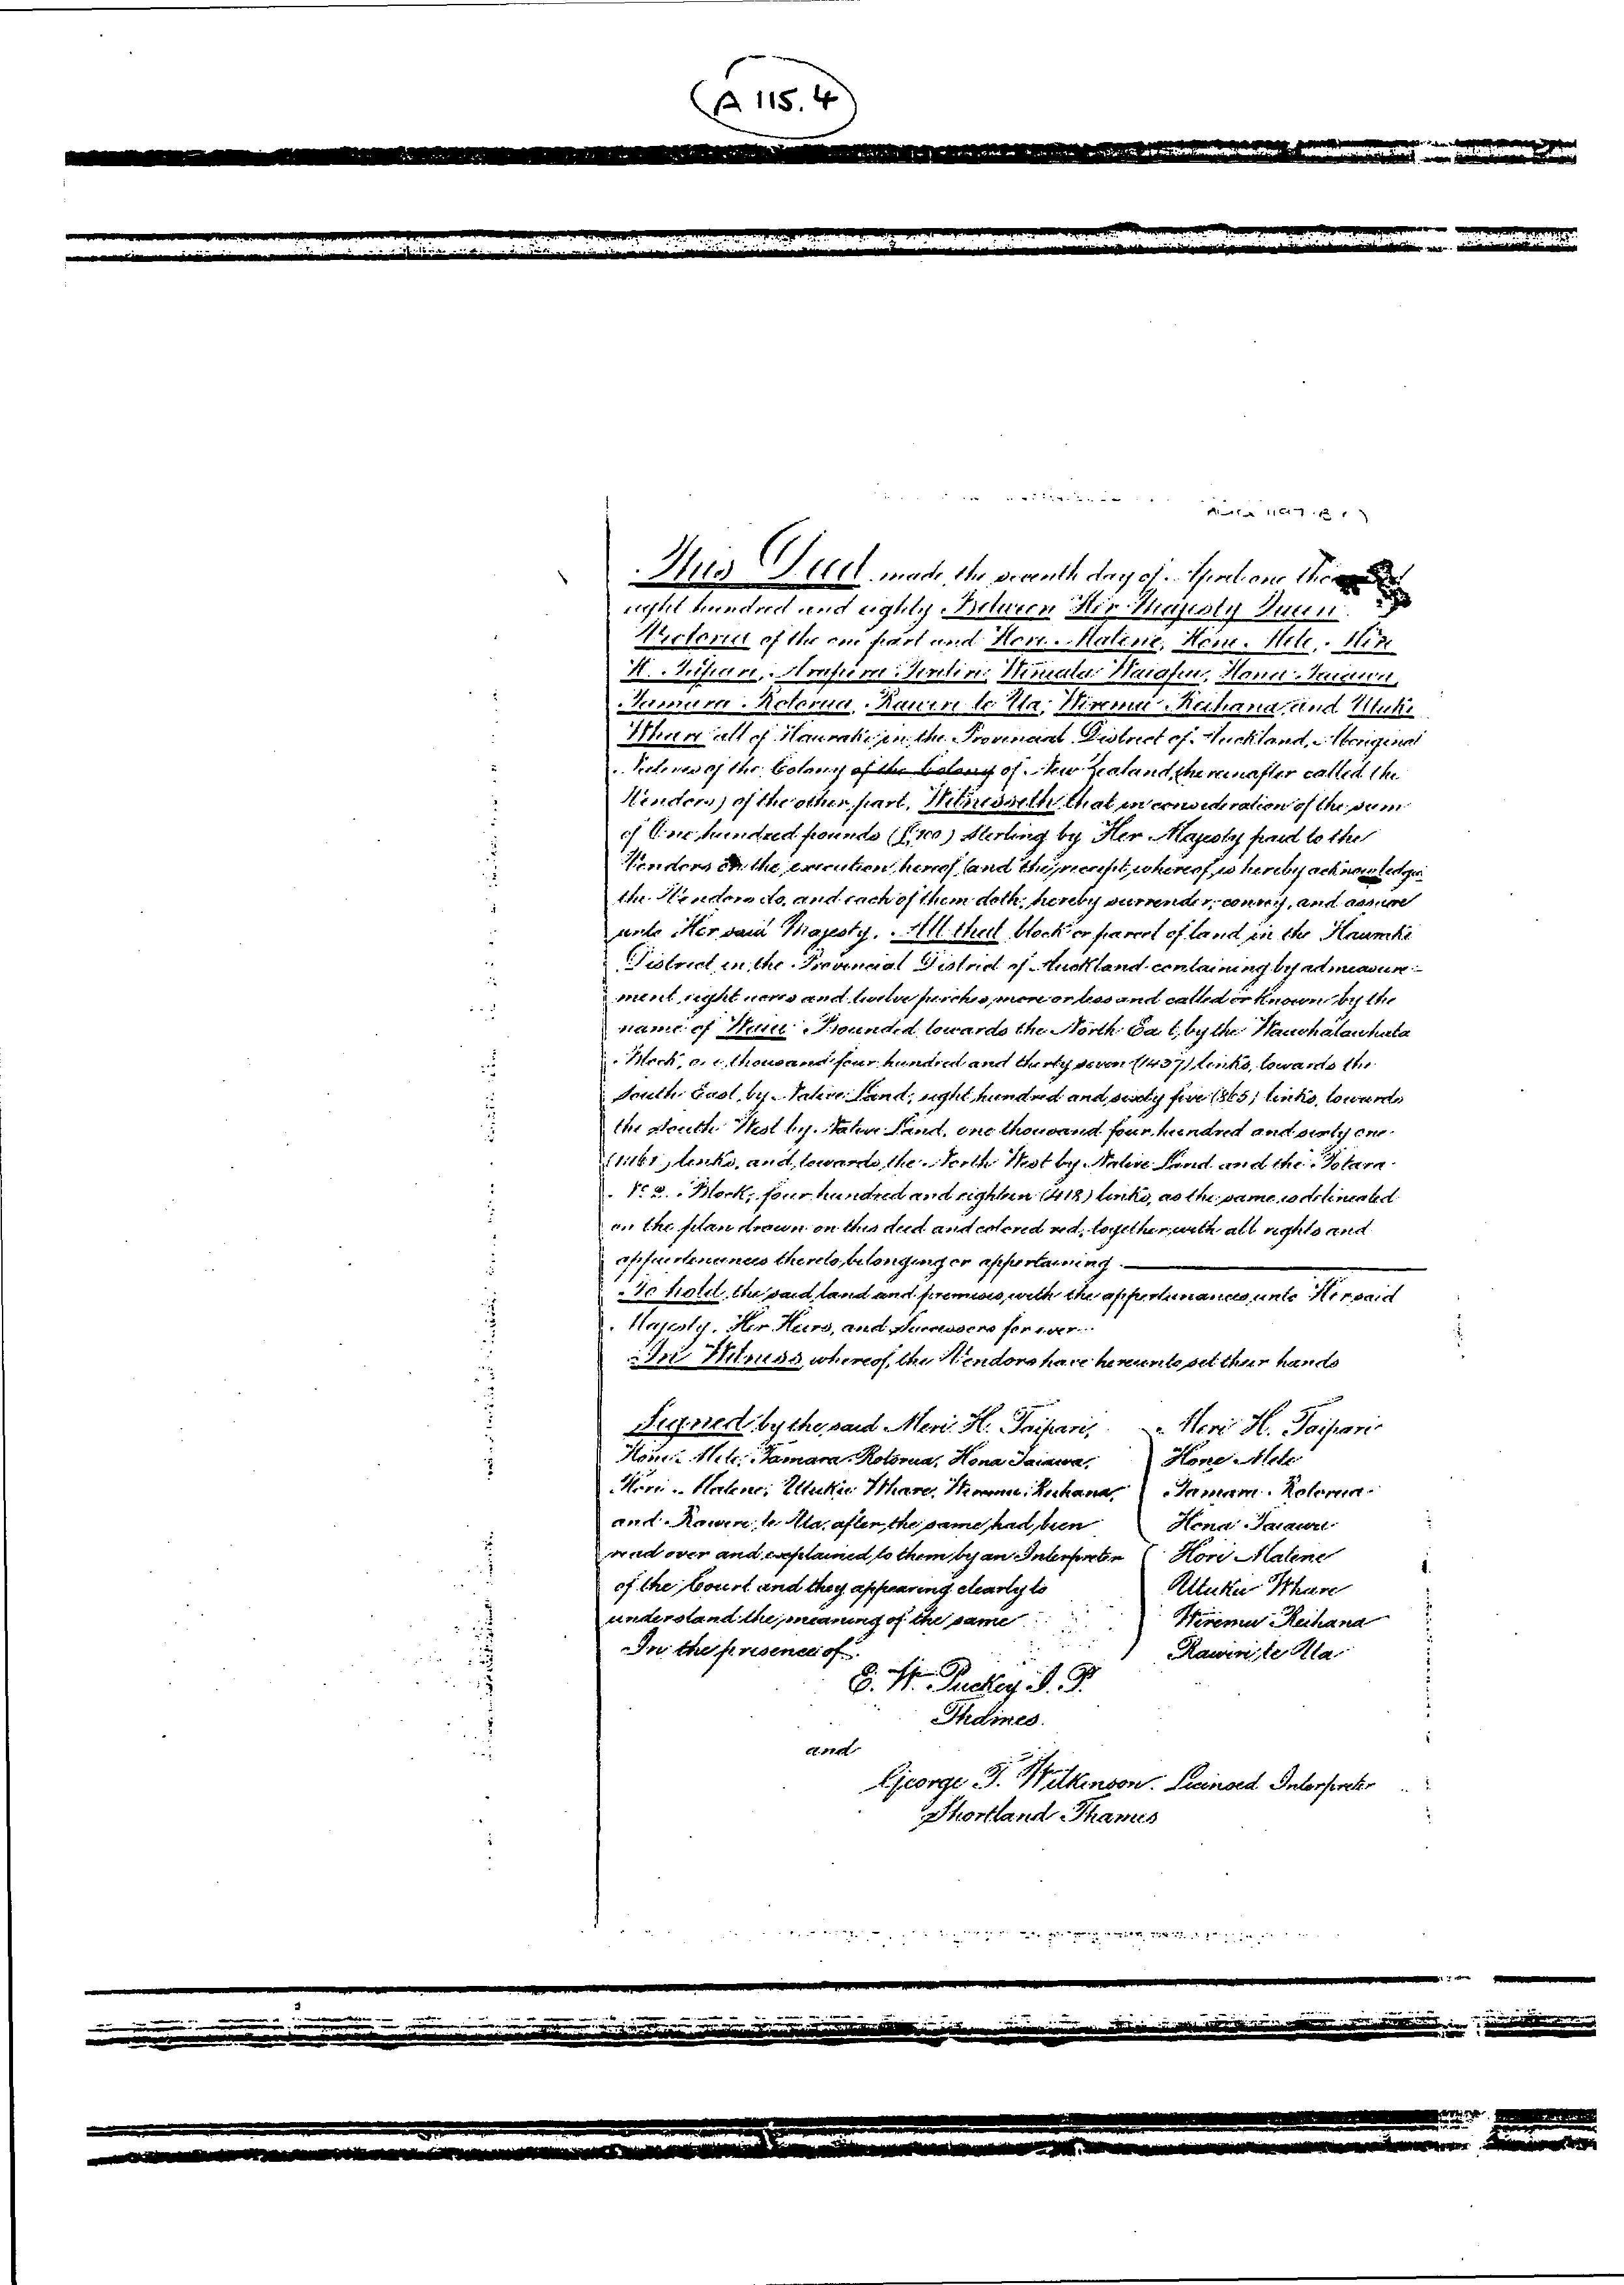 A 115.4
This Deed made the seventh day of April one
eight hundred and eighty Between Her Majesty Queen
Victoria of the one part and Hori Matene, Hone Mete,
H. Taipari, Hona Taiawa,
Tamara Rotorua, Rawiri te Ua, Wiremu Reihana and Utuku
Whare all of Hauraki in the Provincial District of Auckland, Aboriginal
Natives of the Colony of the Colony of New Zealand, (hereinafter called the
Vendors) of the other part, Witnesseth that in consideration of the sum
of One hundred pounds (£100) Sterling by Her Majesty paid to the
Vendors on the execution hereof (and the receipt whereof is hereby acknowledged
the Vendors do, and each of them doth, hereby surrender, convey, and assure
unto Her said Majesty. All that block or parcel of land in the Hauraki
District in the Provincial District of Auckland containing by admeasure-
ment eight acres and twelve perches, more or less and called or known by the
name of Bounded towards the North East, by the Wauwhatawhata
Block, one thousand four hundred and thirty seven (1437) links, towards the
South East, by Native Land, eight hundred and sixty five (865) links, towards
the South West by Native Land, one thousand four hundred and sixty one
(1461) links, and towards the North West by Native Land and the Totara
No 2. Block, four hundred and eighteen (418) links, as the same is delineated
on the plan drawn on this deed and colored red, together with all rights and
appurtenances thereto, belonging or appertaining
To hold the said land and premises, with the appurtenances, unto Her said
Majesty, Her Heirs, and Successors for ever.
In Witness whereof, the Vendors have hereunto set their hands
Signed by the said Meri H. Taipari, Meri H. Taipari
Hone Mete, Tamara Rotorua, Hona Taiawa, Hone Mete
Hori Matene, Utuku Whare, Wiremu Reihana, Tamara Rotorua
and Rawiri te Ua, after the same had been Hona Taiawa
read over and explained to them by an Interpreter Hori Matene
of the Court and they appearing clearly to Utuku Whare
understand the meaning of the same Wiremu Reihana
In the presence of. Rawiri te Ua
E. W. Puckey J. P.
Thames.
and
George T. Wilkinson. Licensed Interpreter
Shortland Thames